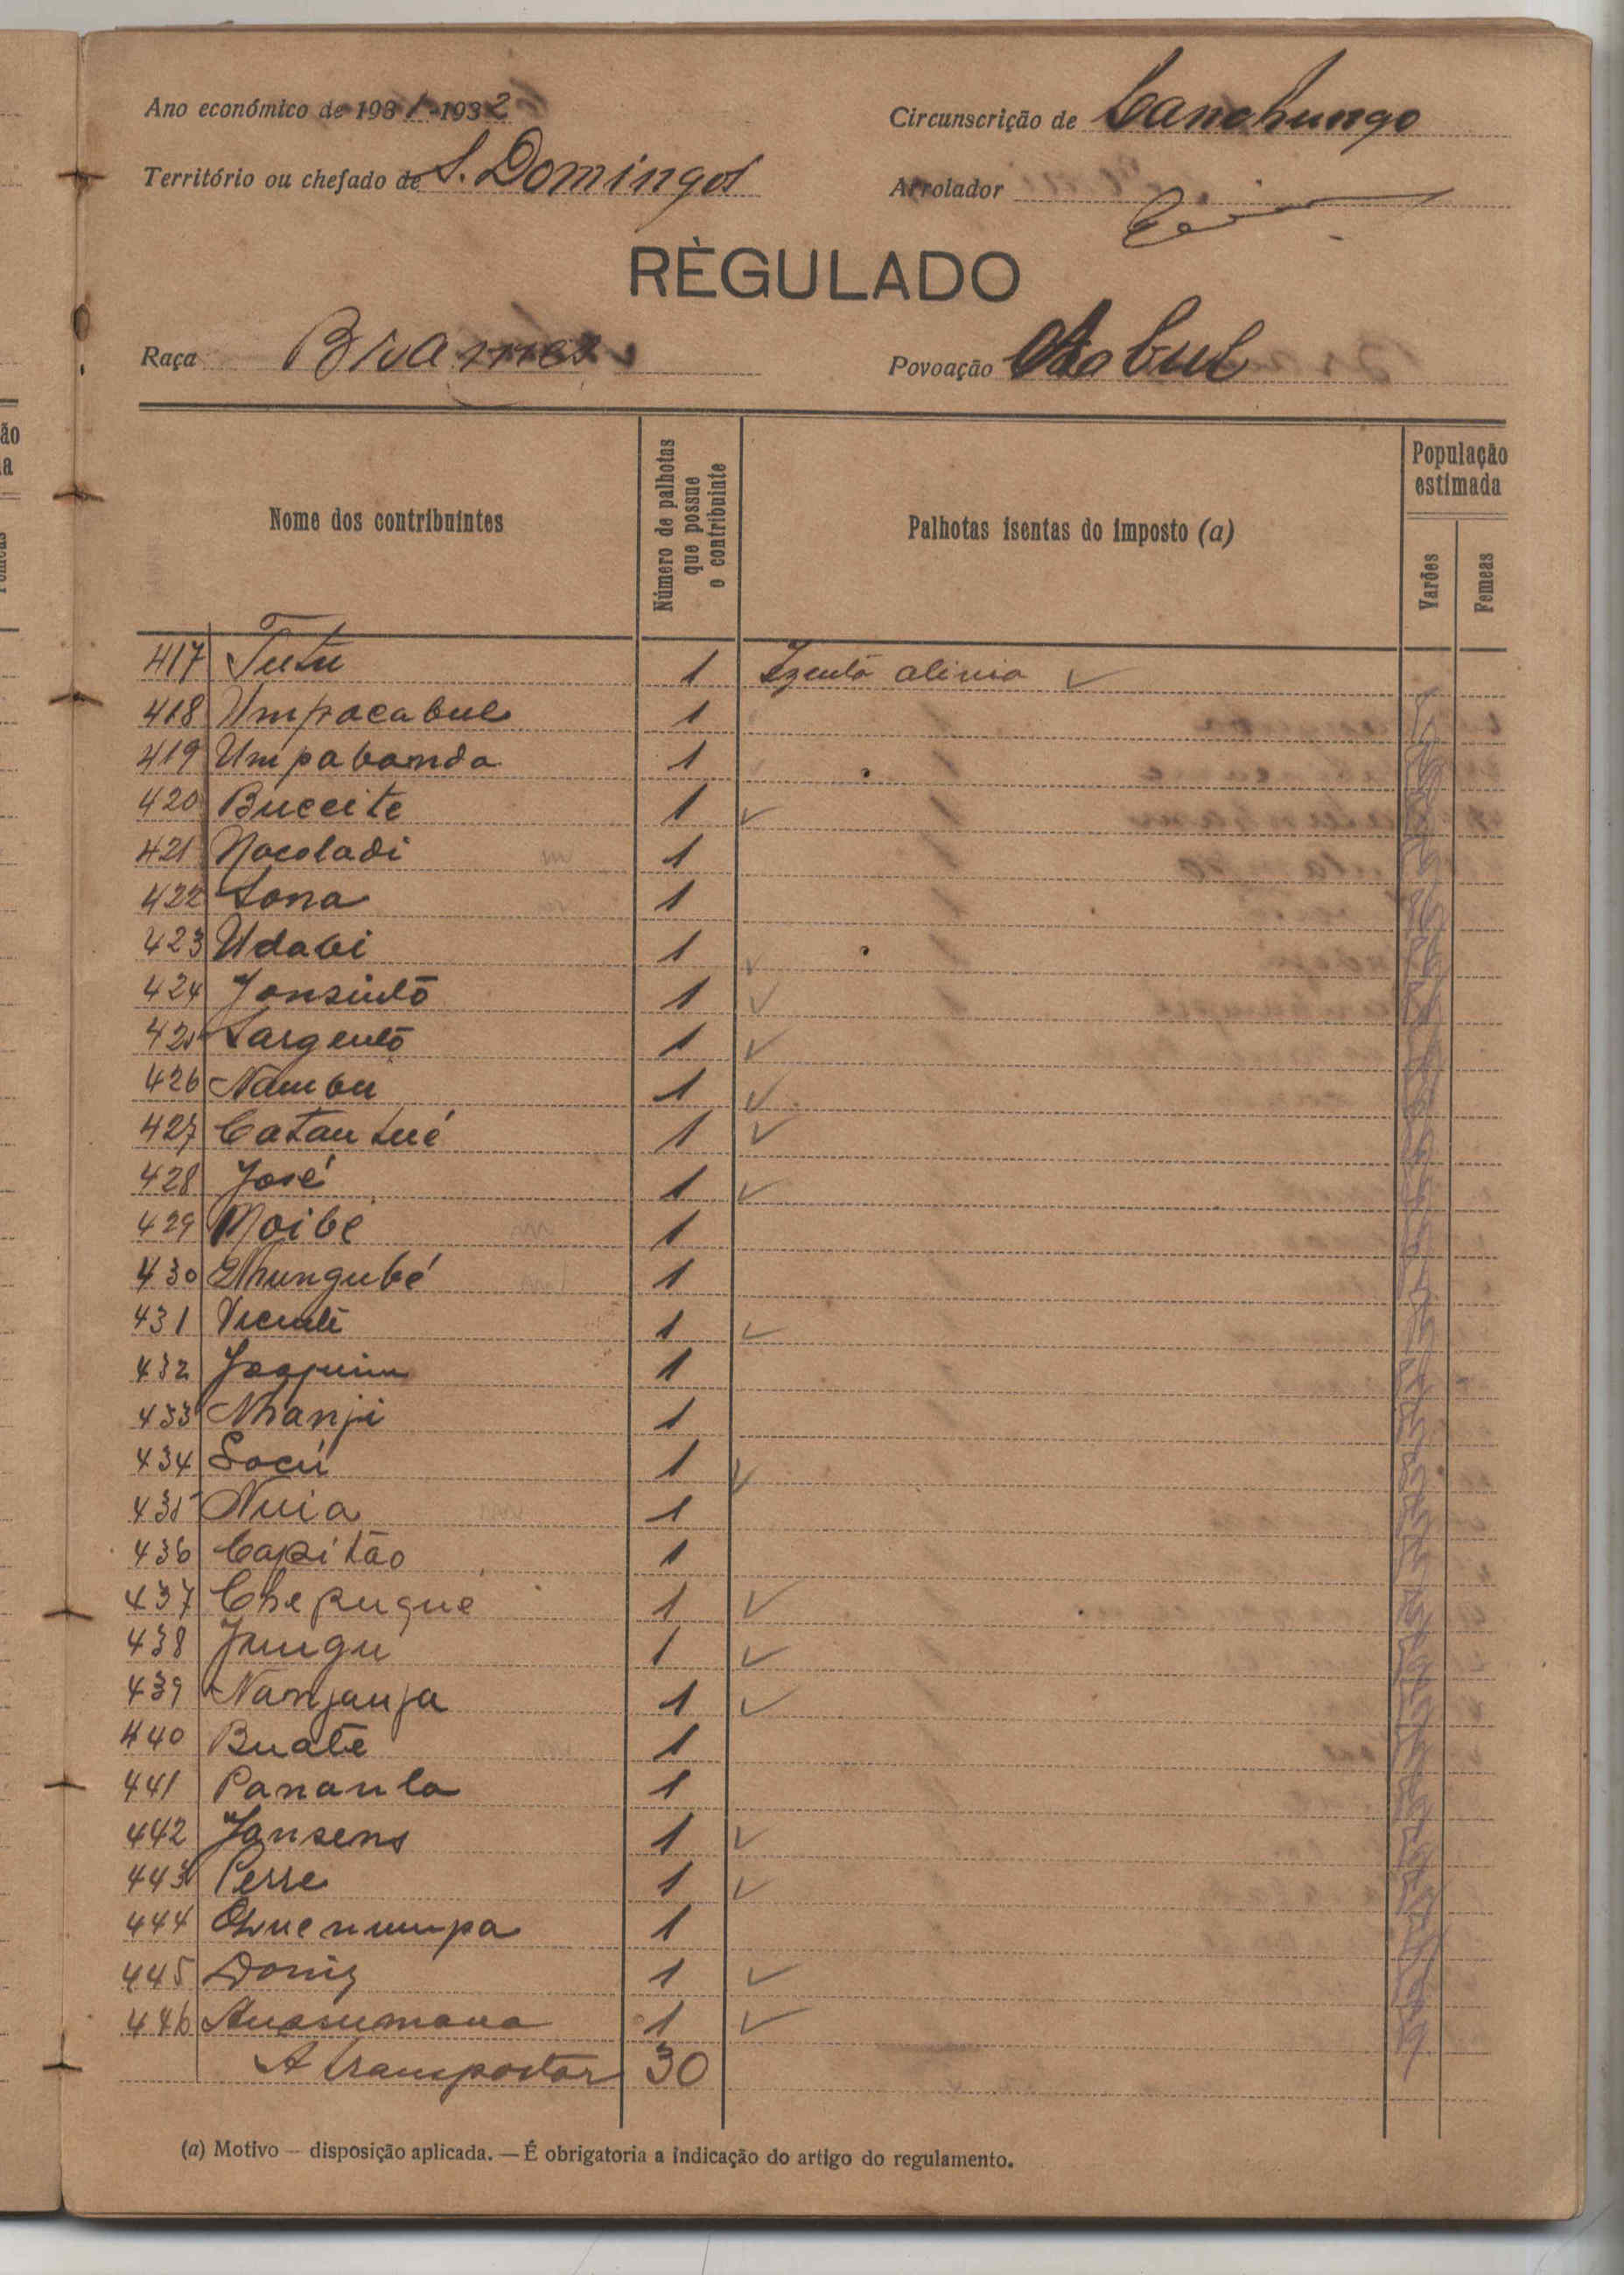 Ano económico de 1931-1932
Circunscrição de Canchungo
Território ou chefado de S. Domingos
Arrolador
RÈGULADO
Raça Brames
Povoação
Nome dos contribuintes
Número de palhotas que possue o contribuinte
Palhotas isentas do imposto (a)
População estimada
Varões
Femeas
417 Tutu 1 Izentō
418 Umpacabul 1
419 Umpabanda 1
420 Buceite 1 ✓
421 Nocoladi 1
422 Lona 1
423 Udabi 1 ✓
424 Jonsintō 1 ✓
425 Sargentō 1 ✓
426 Nambu 1 ✓
427 Catantué 1 ✓
428 José 1 ✓
429 Noibé 1
430 1
431 Vicentē 1 ✓
432 Joaquim 1
433 Nhanji 1
434 Socú 1 ✓
435 Nuia 1
436 Capitão 1
437 Chepugue 1 ✓
438 Jungu 1 ✓
439 Nanjanja 1 ✓
440 Buate 1
441 Pananla 1
442 Jansens 1 ✓
443 Perre 1 ✓
444 1
445 Doniz 1 ✓
446 1 ✓
A transportar 30
(a) Motivo — disposição aplicada. — É obrigatoria a indicação do artigo do regulamento.